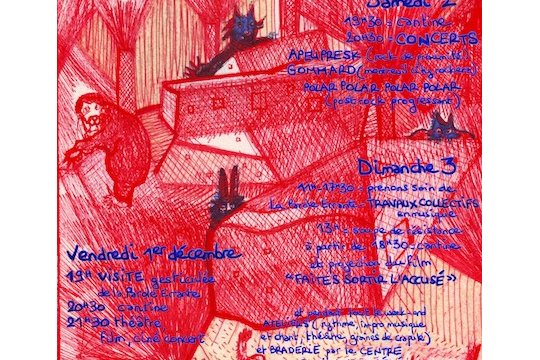 Samedi 2
19H30 = cantine
20H30 = CONCERTS
APELPRESK (rock de proximité)
GOMMARD
POLAR POLAR POLAR POLAR
(post rock progressant)
Dimanche 3
11H-17H30 = prenons soin de
la Parole Errante = TRAVAUX COLLECTIFS
en musique
13H = soupe de résistance
à partir de 18H30 = cantine
et projection du film
"FAITES SORTIR L'ACCUSÉ"
Vendredi 1er décembre
19H VISITE gesticulée
de la Parole Errante
20H30 cantine
21H30 théâtre
film, ciné concert
et pendant tout le week-end
ATELIERS (rythme, impro musique
et chant, théâtre, graines de crapule)
et BRADERIE par le CENTRE